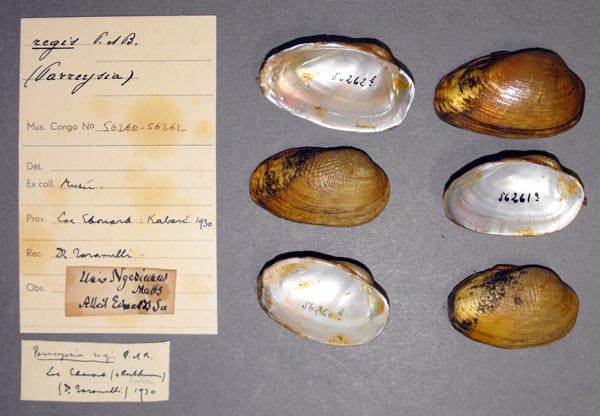 regis P. & B.
(Parreysia)
Mus. Congo No 56260-56262
Dét.
Ex coll. Musée.
Prov. Lac Edouard : Kabaré 1930
Rec. Dr Taramelli.
Obs.
Unio
Albert Edward's
Parreysia regis P. & B.
Lac Edouard
(Dr Taramelli) 1930
56262
56261
56260